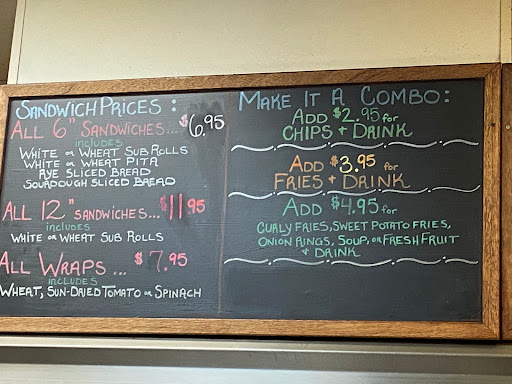 SANDWICH PRICES:
ALL 6" SANDWICHES... $6.95
includes
WHITE or WHEAT SUB ROLLS
WHITE or WHEAT PITA
RYE SLICED BREAD
SOURDOUGH SLICED BREAD
ALL 12" SANDWICHES...$11.95
includes
WHITE or WHEAT SUB ROLLS
ALL WRAPS... $7.95
includes
WHEAT, SUN-DRIED TOMATO or SPINACH
MAKE IT A COMBO:
ADD $2.95 for
CHIPS + DRINK
ADD $3.95 for
FRIES + DRINK
ADD $4.95 for
CURLY FRIES, SWEET POTATO FRIES,
ONION RINGS, SOUP, OR FRESH FRUIT
+ DRINK